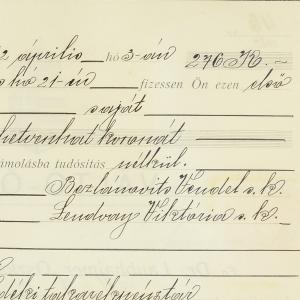 2 április hó 3-án 276 K.-
s hó 21-én fizessen Ön ezen első
saját
hetvenhat koronát
ámolásba tudósítás nélkül.
Bezlánovits Vendel s. k.
Lendvay Viktória s. k.
déki takarékpénztár